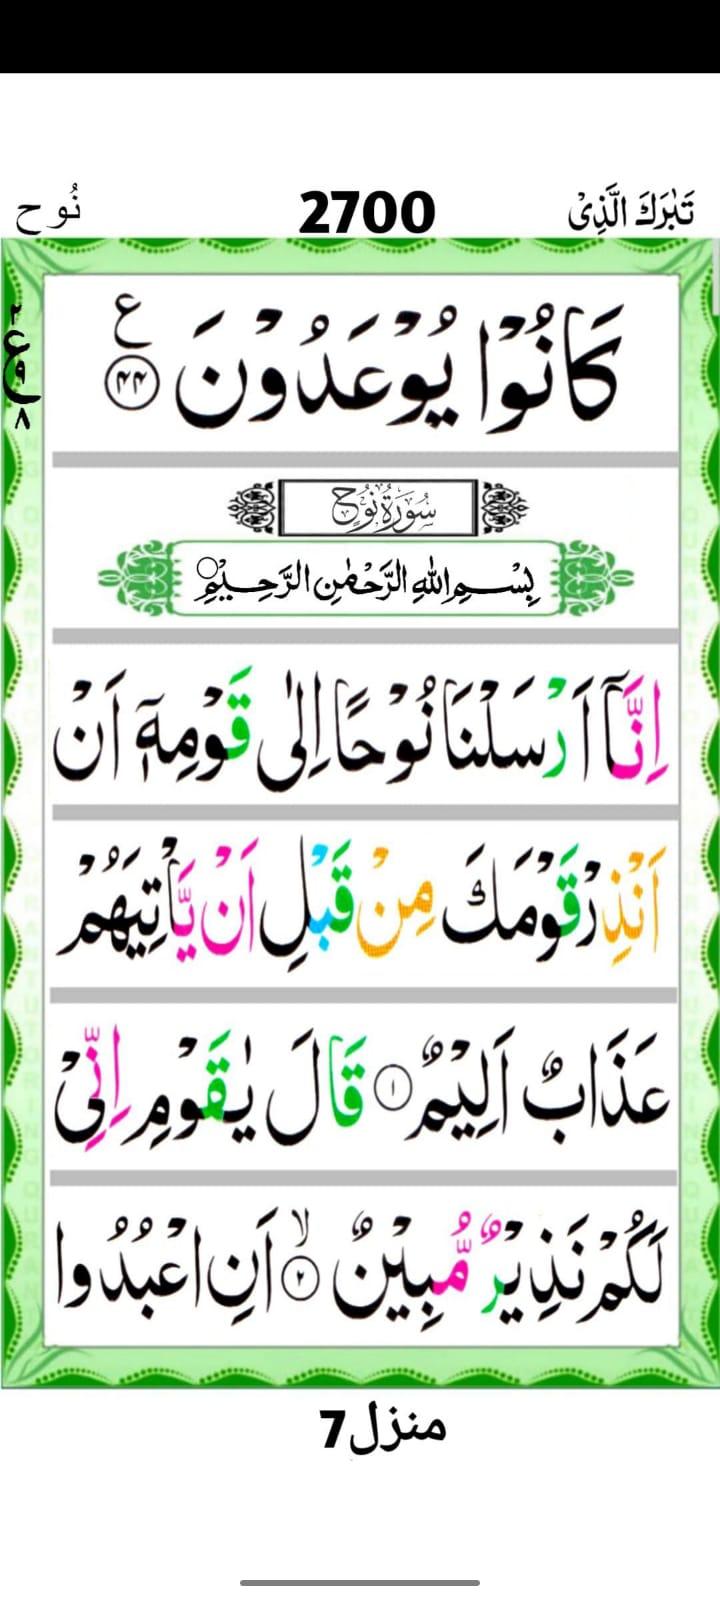 تَبٰرَكَ الَّذِىْ 2700 نُوح
كَانُوْا يُوْعَدُوْنَ ۴۴ ع
سُوْرَةُ نُوْحٍ
بِسْمِ اللهِ الرَّحْمٰنِ الرَّحِيْمِ
اِنَّاۤ اَرْسَلْنَا نُوْحًا اِلٰى قَوْمِهٖۤ اَنْ
اَنْذِرْ قَوْمَكَ مِنْ قَبْلِ اَنْ يَّاْتِيَهُمْ
عَذَابٌ اَلِيْمٌ ۱ قَالَ يٰقَوْمِ اِنِّىْ
لَكُمْ نَذِيْرٌ مُّبِيْنٌ ۲ۙ اَنِ اعْبُدُوا
منزل7